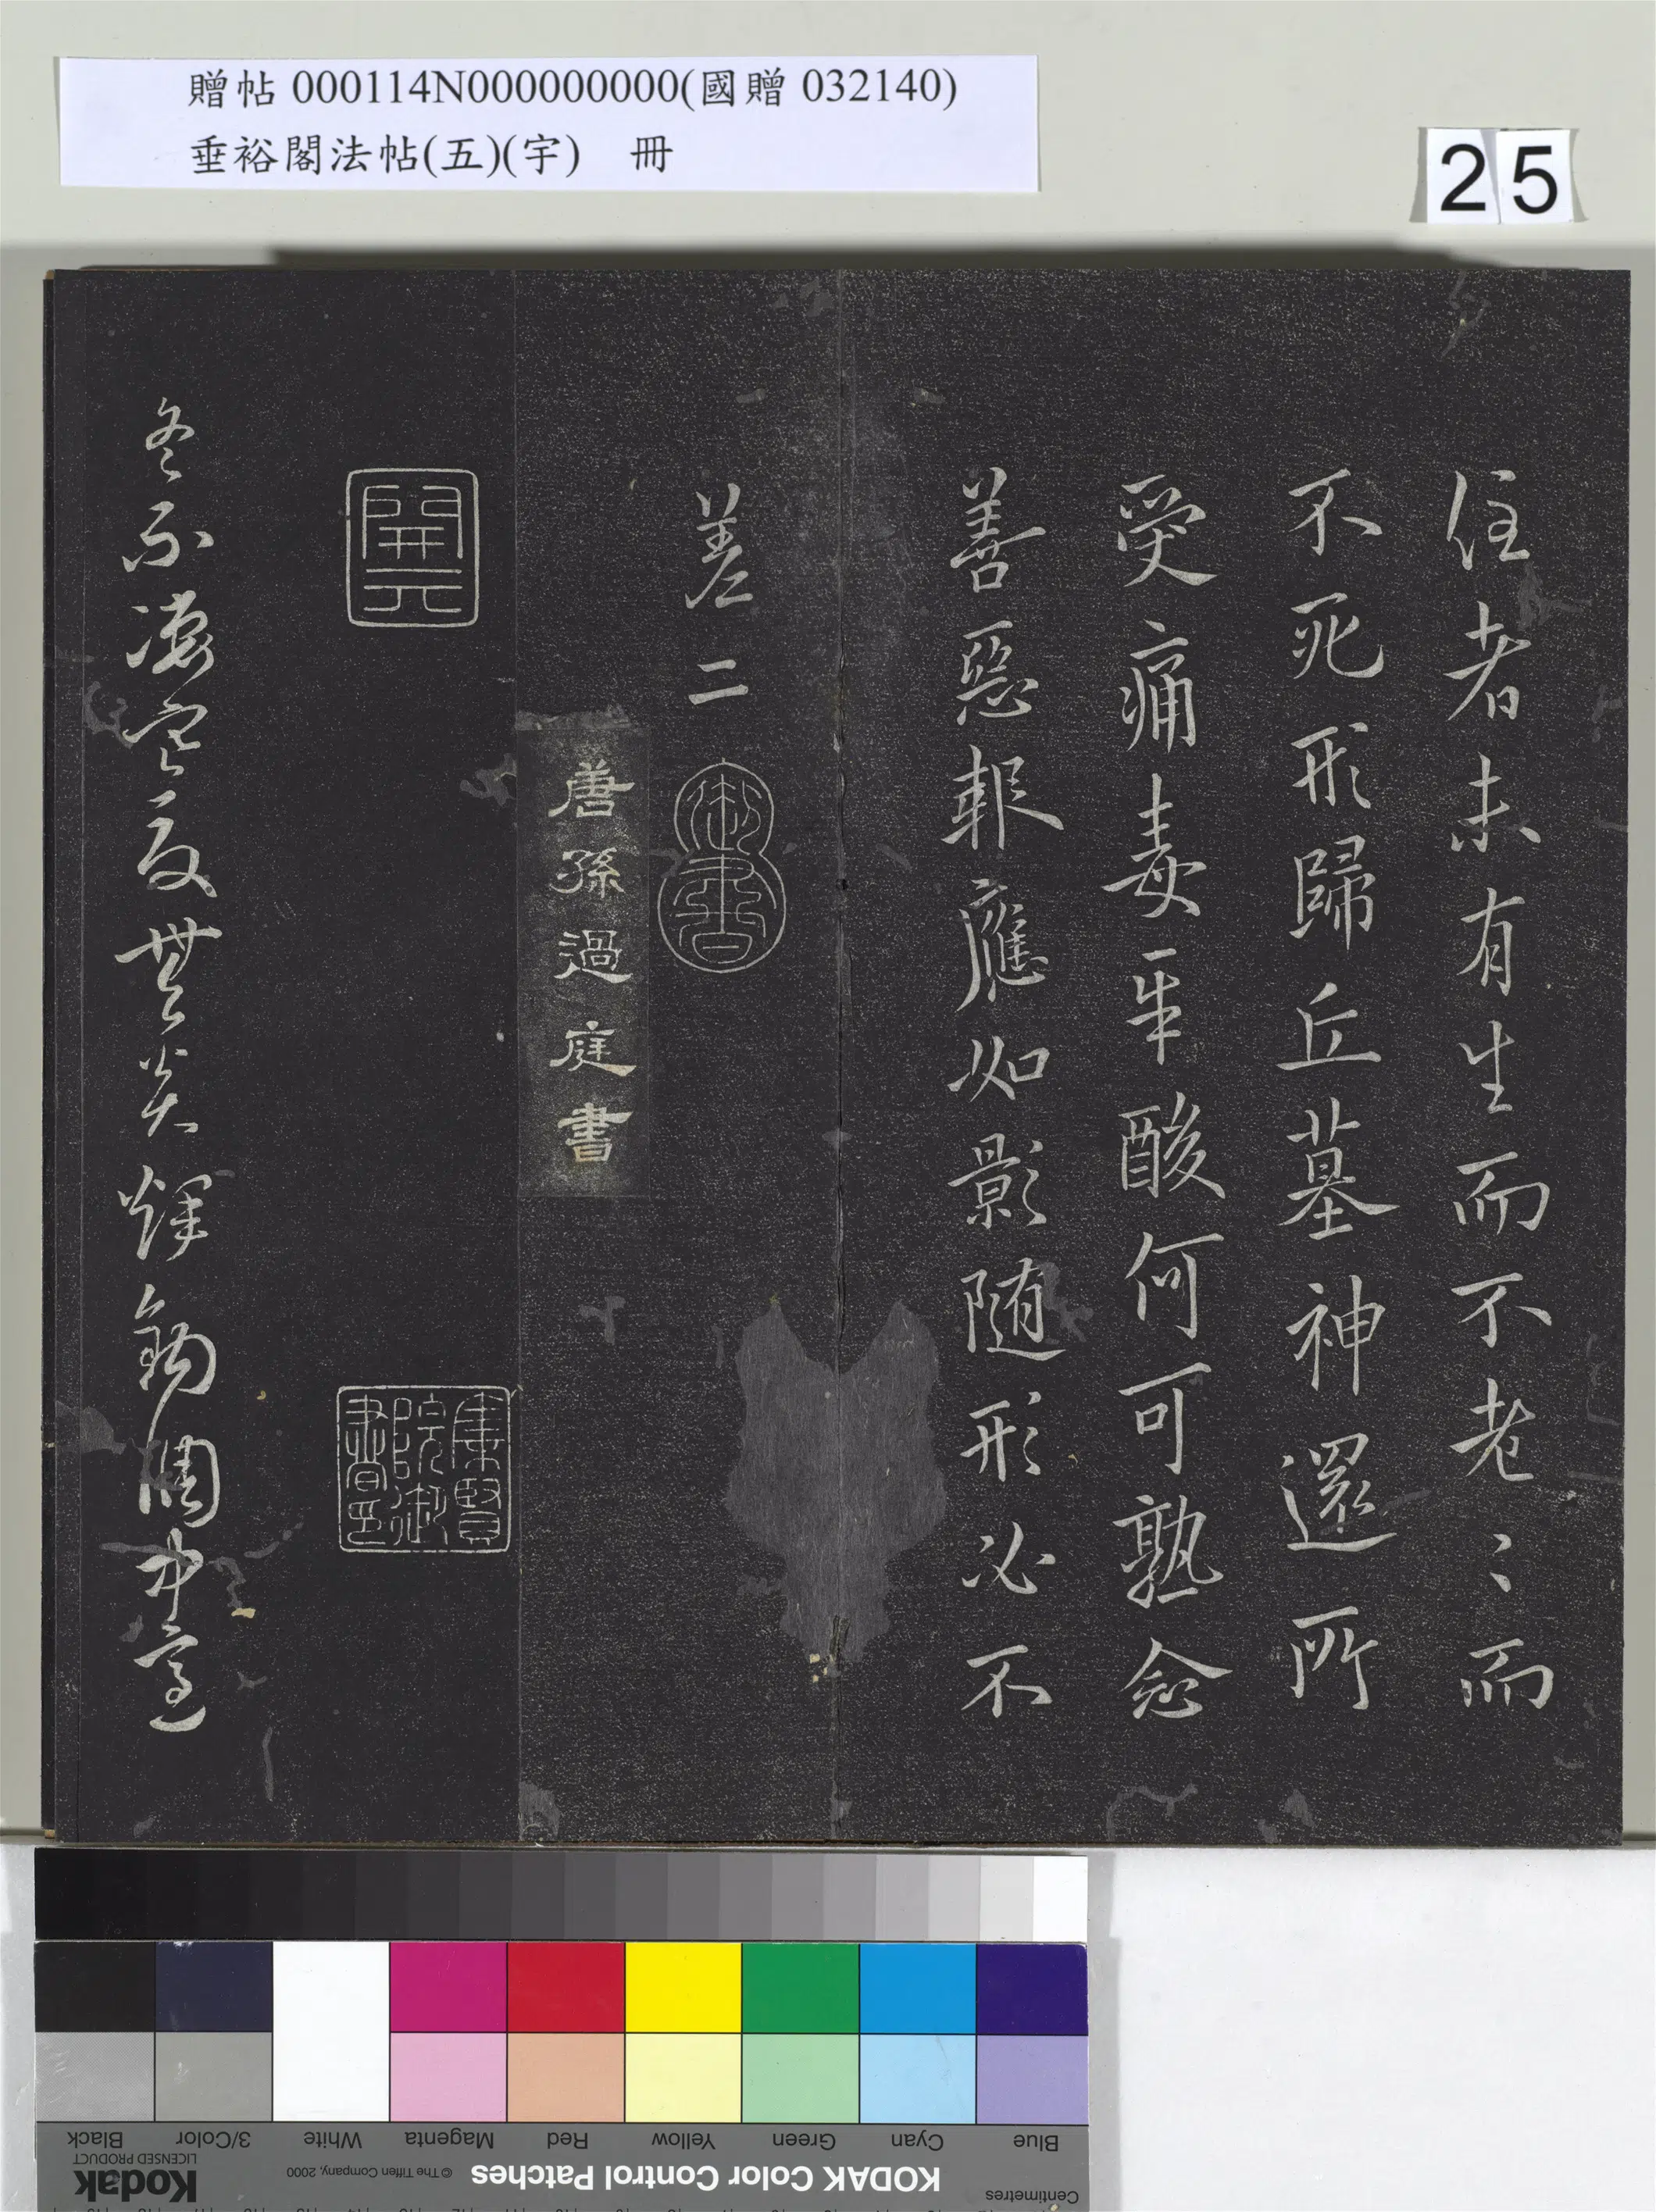 贈帖 000114N000000000(國贈 032140)
垂裕閣法帖(五)(宇) 冊
25
住者未有生而不老〻而
不死形歸丘墓神還所
受痛毒辛酸何可熟念
善惡報應如影随形必不
差二
御書
唐孫過庭書
開元
集賢院御書印
冬不凄寒夏無炎燀鈞調中適
Centimetres
KODAK Color Control Patches
© The Tiffen Company, 2000
Kodak
LICENSED PRODUCT
Blue
Cyan
Green
Yellow
Red
Magenta
White
3/Color
Black